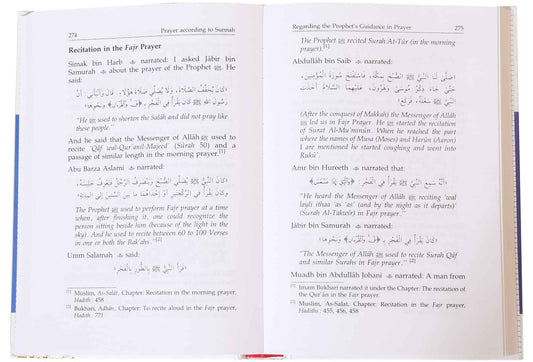 274 Prayer according to Sunnah
Recitation in the Fajr Prayer
Simak bin Harb narrated: I asked Jâbir bin
Samurah about the prayer of the Prophet ﷺ. He
said:
«كَانَ يُخَفِّفُ الصَّلَاةَ، وَلَا يُصَلِّي صَلَاةَ هَؤُلَاءِ. قَالَ: وَأَنْبَأَنِي: أَنَّ
رَسُولَ اللهِ ﷺ كَانَ يَقْرَأُ فِي الْفَجْرِ ﴿ق وَالْقُرْآنِ﴾ وَنَحْوِهَا»
"He ﷺ used to shorten the Salâh and did not pray like
these people."
And he said that the Messenger of Allâh ﷺ used to
recite 'Qâf wal-Qur'anil-Majeed' (Sûrah 50) and a
passage of similar length in the morning prayer.[1]
Abu Barza Aslami narrated:
«كَانَ النَّبِيُّ ﷺ يُصَلِّي الصُّبْحَ وَيَنْصَرِفُ الرَّجُلُ فَيَعْرِفُ جَلِيسَهُ،
وَكَانَ يَقْرَأُ فِي الرَّكْعَتَيْنِ أَوْ إِحْدَاهُمَا مَا بَيْنَ السِّتِّينَ إِلَى الْمِائَةِ»
"The Prophet ﷺ used to perform Fajr prayer at a time
when, after finishing it, one could recognize the
person sitting beside him (because of the light in the
sky). And he used to recite between 60 to 100 Verses
in one or both the Rak'ahs."[2]
Umm Salamah said:
«قَرَأَ النَّبِيُّ ﷺ بِالطُّورِ بِالْفَجْرِ»
[1] Muslim, As-Salât, Chapter: Recitation in the morning prayer,
Hadith : 458
[2] Bukhari, Adhân, Chapter: To recite aloud in the Fajr prayer,
Hadith : 771
Regarding the Prophet's Guidance in Prayer 275
The Prophet ﷺ recited Surah At-Tûr (in the morning
prayer).[1]
Abdullâh bin Saib narrated:
«صَلَّى لَنَا النَّبِيُّ ﷺ الصُّبْحَ بِمَكَّةَ، فَاسْتَفْتَحَ سُورَةَ الْمُؤْمِنِينَ،
حَتَّى جَاءَ ذِكْرُ مُوسَى وَهَارُونَ، عَلَيْهِمَا السَّلَامُ أَخَذَتِ
النَّبِيَّ ﷺ سَعْلَةٌ، فَرَكَعَ»
(After the conquest of Makkah) the Messenger of Allâh
ﷺ led us in Fajr Prayer. He ﷺ started the recitation
of Surat Al-Mu'minûn. When he reached the part
where the names of Musa (Moses) and Harûn (Aaron)
I are mentioned he started coughing and went into
Rukû'.
Amr bin Hureeth narrated that:
«أَنَّهُ سَمِعَ النَّبِيَّ ﷺ يَقْرَأُ فِي الْفَجْرِ: ﴿وَاللَّيْلِ إِذَا عَسْعَسَ﴾»
"He heard the Messenger of Allâh ﷺ reciting 'wal
layli ithaa 'as 'as' (and by the night as it departs')
(Surah Al-Takwir) in Fajr prayer."
Jâbir bin Samurah narrated:
«كَانَ يَقْرَأُ فِي الْفَجْرِ بِـ ﴿ق وَالْقُرْآنِ﴾ وَنَحْوِهَا»
"The Messenger of Allâh ﷺ used to recite Surah Qâf
and similar Surahs in Fajr prayer." [2]
Muadh bin Abdullâh Johani narrated: A man from
[1] Imam Bukhari narrated it under the Chapter: The recitation of
the Qur'ân in the Fajr prayer.
[2] Muslim, As-Salat, Chapter: Recitation in the Fajr prayer,
Hadiths : 455, 456, 458